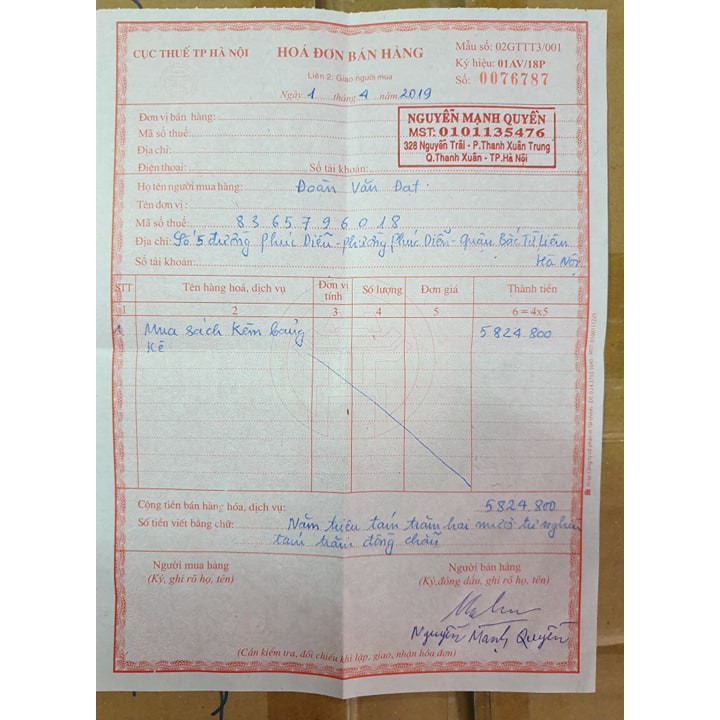 CỤC THUẾ TP HÀ NỘI
HOÁ ĐƠN BÁN HÀNG
Liên 2: Giao người mua
Ngày 1 tháng 4 năm 2019
Mẫu số: 02GTTT3/001
Ký hiệu: 01AV/18P
Số: 0076787
Đơn vị bán hàng:
Mã số thuế:
Địa chỉ:
Điện thoại: Số tài khoản:
NGUYỄN MẠNH QUYỀN
MST: 0101135476
328 Nguyễn Trãi - P.Thanh Xuân Trung
Q.Thanh Xuân - TP.Hà Nội
Họ tên người mua hàng: Đoàn Văn Đạt
Tên đơn vị:
Mã số thuế: 8365796018
Địa chỉ: Số 5 đường Phúc Diễn - phường Phúc Diễn - Quận Bắc Từ Liêm
Hà Nội
Số tài khoản:
STT Tên hàng hoá, dịch vụ Đơn vị tính Số lượng Đơn giá Thành tiền
1 2 3 4 5 6 = 4x5
1 Mua sách kèm bảng 5824.800
kê
Cộng tiền bán hàng hóa, dịch vụ: 5824.800
Số tiền viết bằng chữ: Năm triệu tám trăm hai mươi tư nghìn
tám trăm đồng chẵn
Người mua hàng
(Ký, ghi rõ họ, tên)
Người bán hàng
(Ký, đóng dấu, ghi rõ họ, tên)
Nguyễn Mạnh Quyền
(Cần kiểm tra, đối chiếu khi lập, giao, nhận hóa đơn)